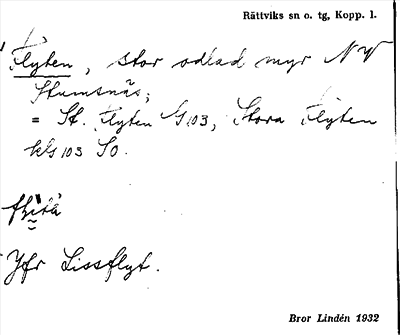 Rättviks sn o. tg, Kopp. l.
Flyten, stor odlad myr NV
Stumsnäs;
= St. Flyten G 103, Stora Flyten
kls 103 SO.
Jfr Lissflyt.
Bror Lindén 1932